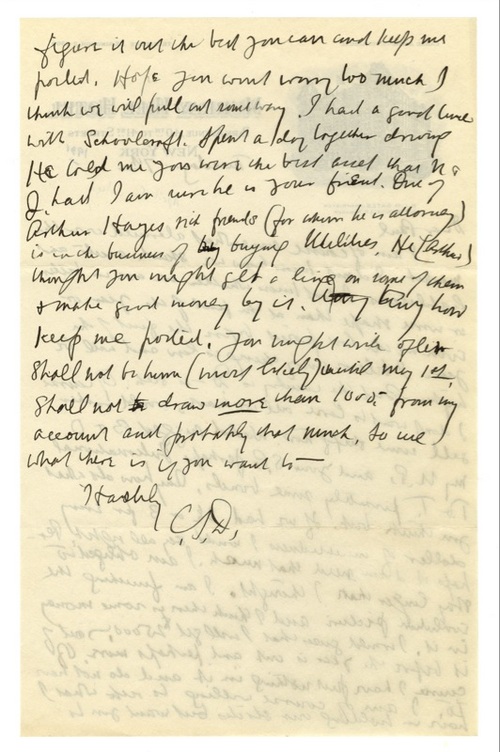 figure it out the best you can and keep me
posted. Hope you wont worry too much I
think we will pull out some way. I had a good time
with Schoolcraft. Spent a day together driving
He told me you were the best asset that N &
J. had I am sure he is your friend. One of
Arthur Hayes rich friends (for whom he is attorney)
is in the business of buying Utilities. He (Arthur)
thought you might get a line on some of them
& make good money by it. Any how
keep me posted. You might write often
Shall not be home (most likely) until May 1st.
Shall not draw more than 1000 from my
account and probably not that much, so use
what there is if you want to —
Hastily
C.S.D.